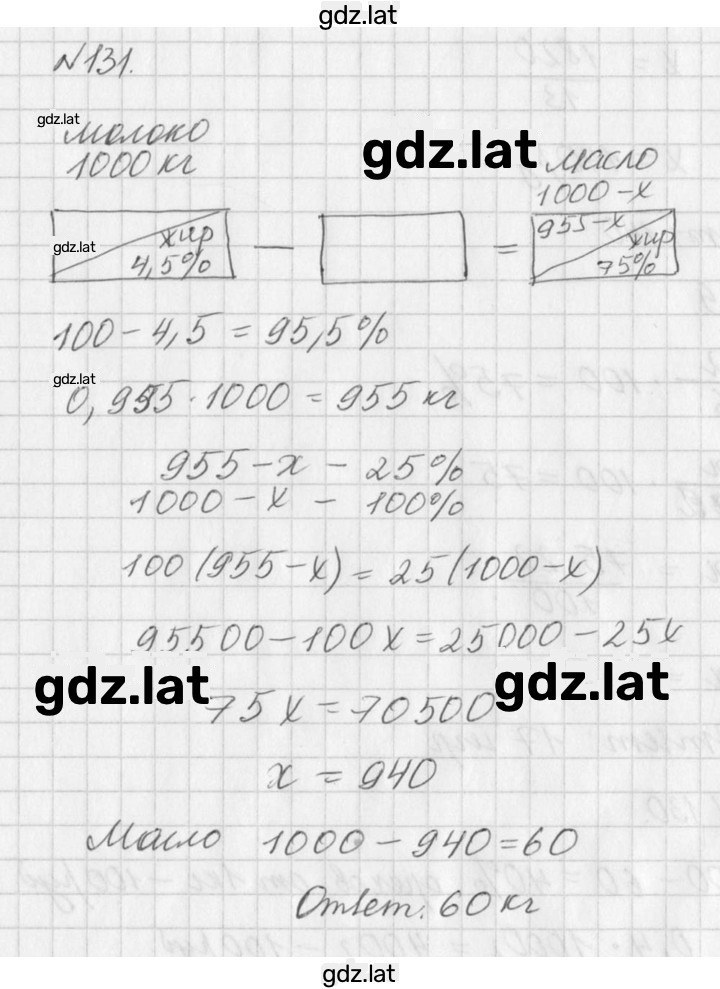 gdz.lat
№131.
gdz.lat
молоко
1000 кг
gdz.lat
масло
1000-x
gdz.lat
жир
4,5%
—
=
955-x
жир
75%
100-4,5=95,5%
gdz.lat
0,955·1000=955 кг
955-x - 25%
1000-x - 100%
100(955-x)=25(1000-x)
95500-100x=25000-25x
gdz.lat
gdz.lat
75x=70500
x=940
Масло 1000-940=60
Ответ. 60 кг
gdz.lat